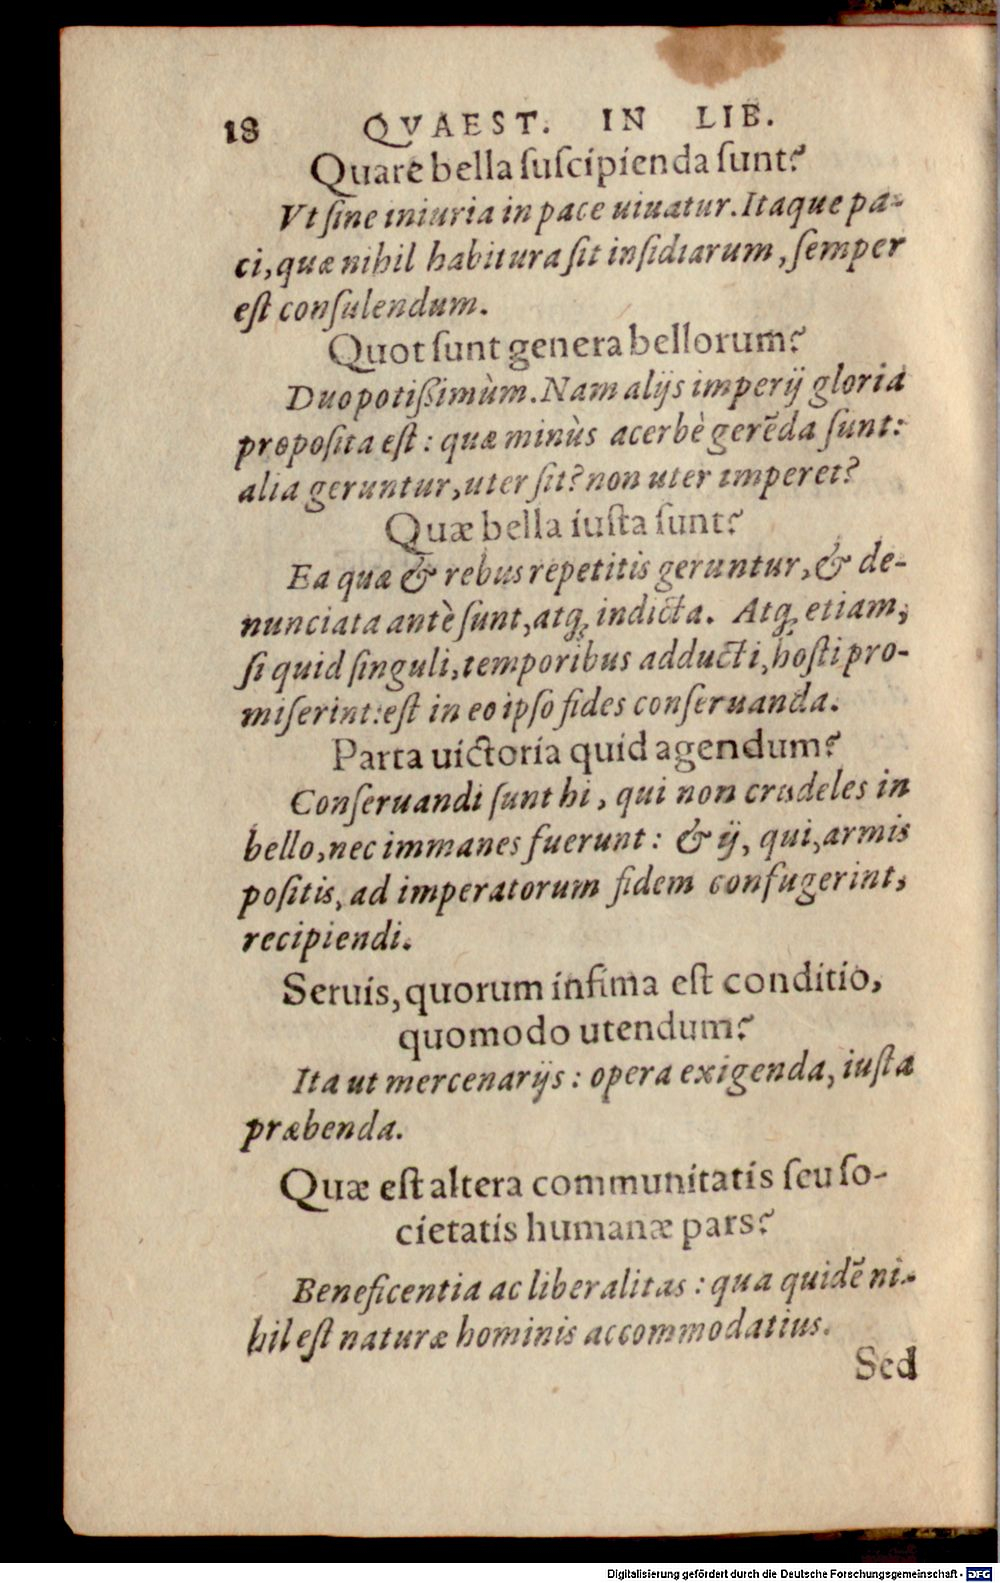 18 QVAEST. IN LIB.
Quare bella ſuſcipienda ſunt?
Vt ſine iniuria in pace uiuatur. Itaque pa-
ci, quæ nihil habitura ſit inſidiarum, ſemper
eſt conſulendum.
Quot ſunt genera bellorum?
Duo potißimùm. Nam alijs imperij gloria
propoſita eſt: quæ minùs acerbè gerẽda ſunt:
alia geruntur, uter ſit? non uter imperet?
Quæ bella iuſta ſunt?
Ea quæ & rebus repetitis geruntur, & de-
nunciata antè ſunt, atq́; indicta. Atq́; etiam,
ſi quid ſinguli, temporibus adducti, hoſti pro-
miſerint: eſt in eo ipſo fides conſeruanda.
Parta uictoria quid agendum?
Conſeruandi ſunt hi, qui non crudeles in
bello, nec immanes fuerunt: & ij, qui, armis
poſitis, ad imperatorum fidem confugerint,
recipiendi.
Seruis, quorum infima eſt conditio,
quomodo utendum?
Ita ut mercenarijs: opera exigenda, iuſta
præbenda.
Quæ eſt altera communitatis ſeu ſo-
cietatis humanæ pars?
Beneficentia ac liberalitas: qua quidẽ ni-
hil eſt naturæ hominis accommodatius.
Sed
Digitalisierung gefördert durch die Deutsche Forschungsgemeinschaft - DFG